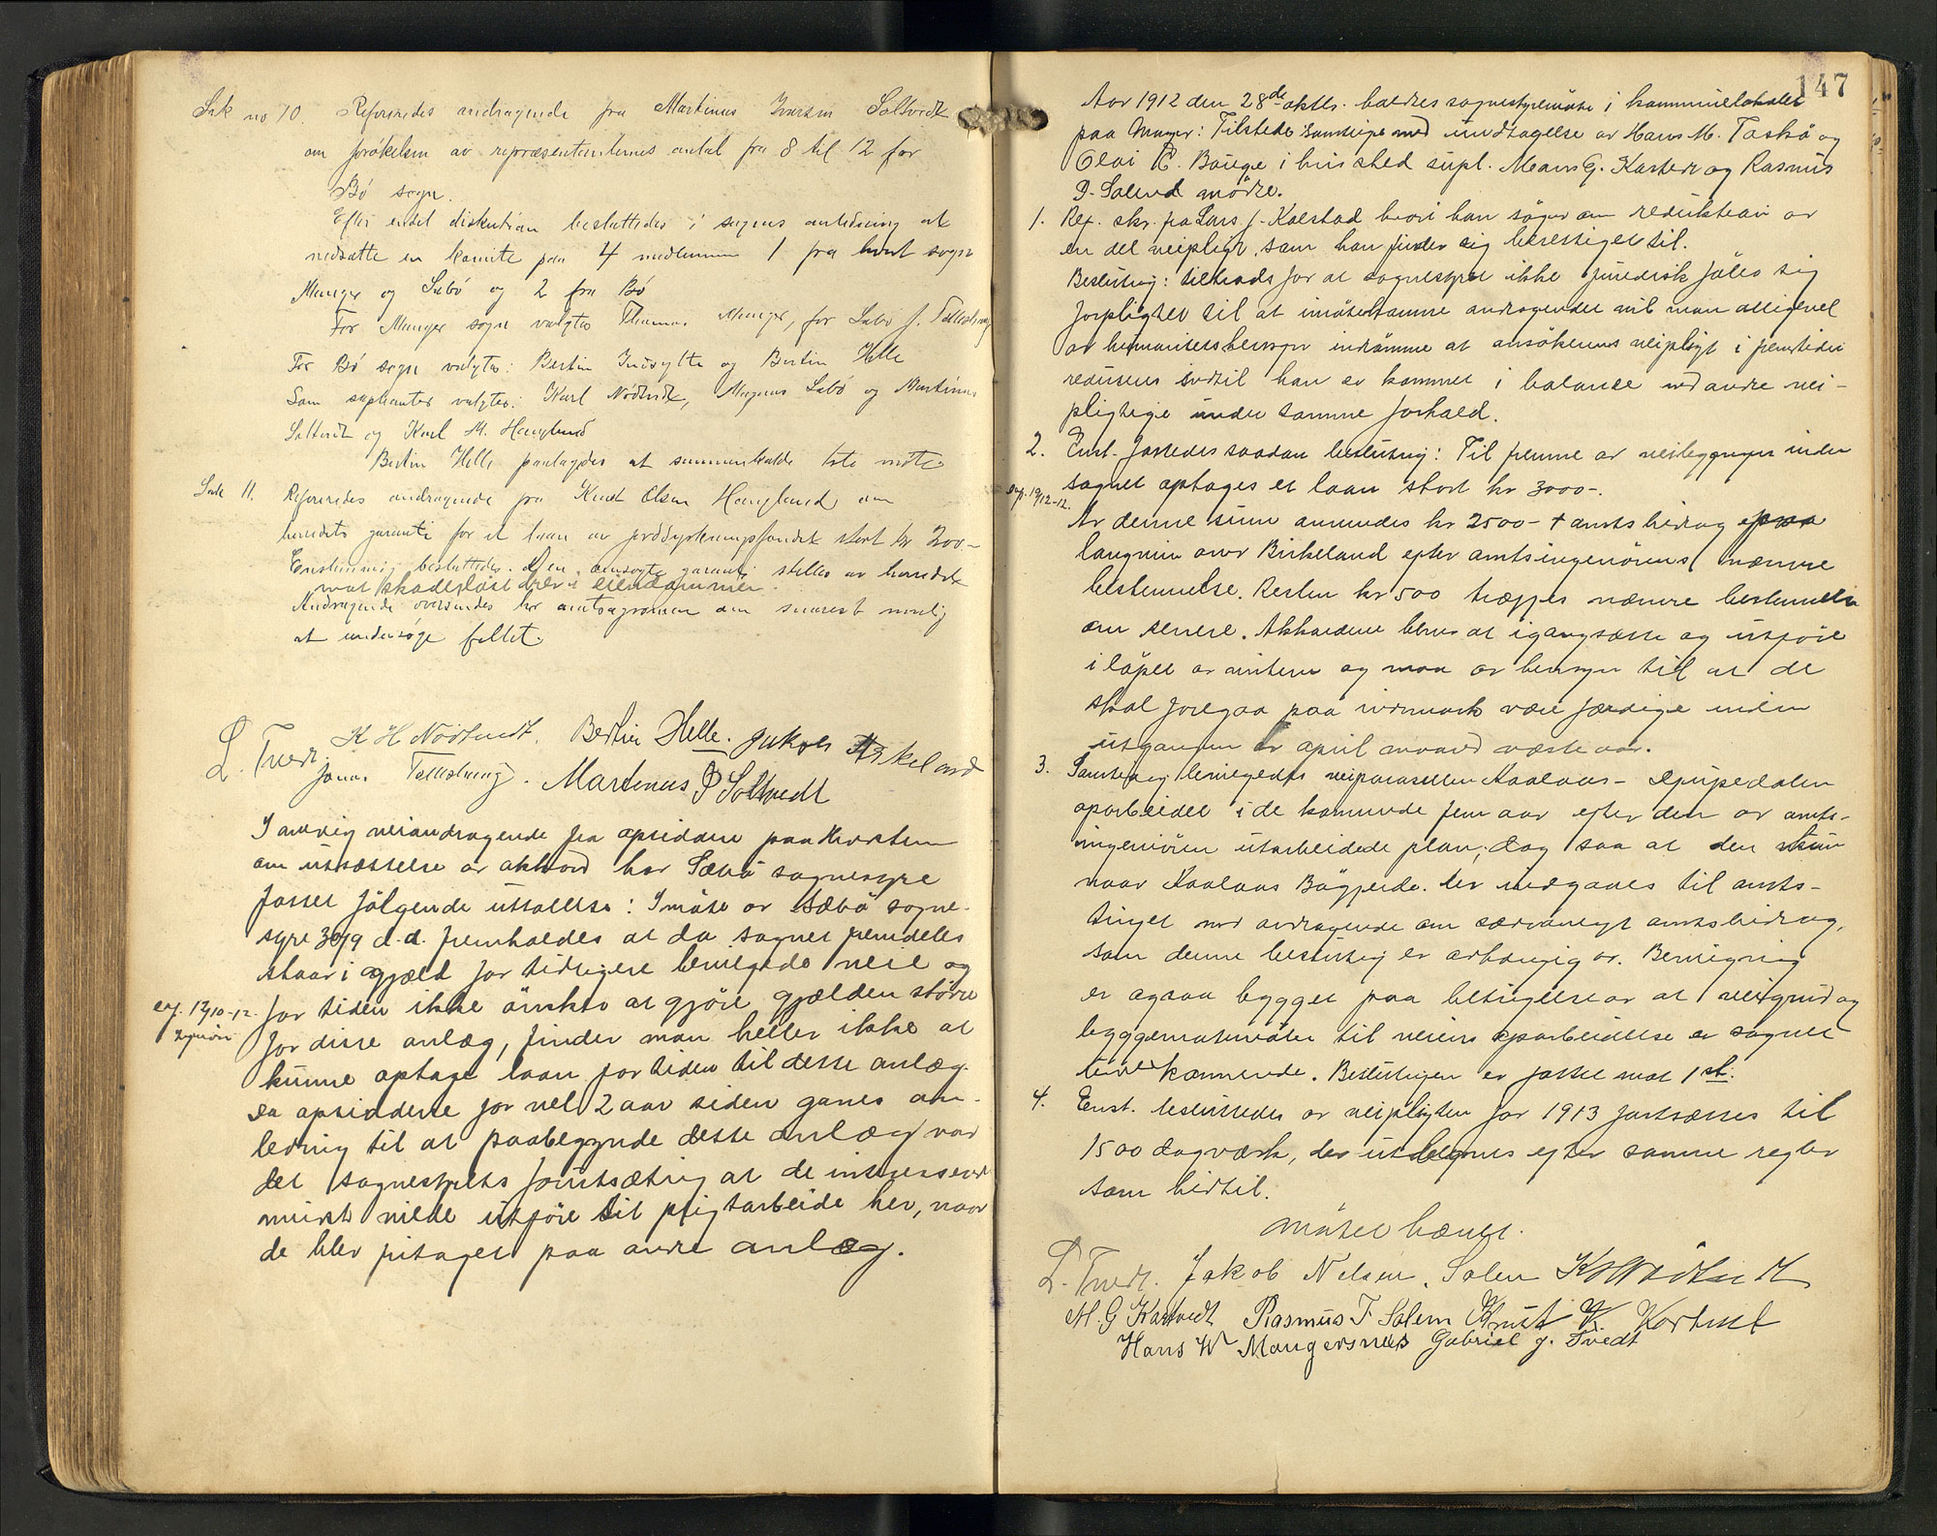 Sak no 10. Refereredes andragende fra Martinus Iversen Soltvedt
om forøkelsen av repræsentanternes antal fra 8 til 12 for
Bø sogn.
Efter endel diskution besluttedes i sagens anledning at
nedsætte en komite paa 4 medlemmer 1 fra hvert sogn
Manger og Sæbø og 2 fra Bø
For Manger sogn valgtes Thomas Manger, for Sæbø J.
For Bø sogn valgtes: Bertin Indsylte og Bertin Helle
Som suplianter valgtes: Karl Nödtvedt, Magnus Sæbø og Martinus
Soltvedt og Karl M. Hauglund
Bertin Helle paalagdes at sammenkalde til møte
Sak 11. Refereredes andragende fra Knut Olsen Hauglund om
herredets garanti for et laan av jorddyrkningsfondet stort kr 200-
Enstemmig besluttedes. Den ansøgte garanti stilles av herredet
mot skadesløst brev i eiendommen.
Andragende oversendes hr amtsagronom om snarest mulig
at undersøge feltet.
L. Tvedt K H Nödtvedt. Bertin Helle. Jakob Askeland
Jonas. Martinus I Soltvedt
I anledning veiandragende fra opsiddere paa
om utsættelse av akkord har Sæbö sognestyre
fattet følgende uttalelse: I møte av Sæbö sogne-
styre 30/9 d.d. fremholdes at da sognet fremdeles
staar i gjæld for tidligere bevilgede veie og
exp. 17/10-12. for tiden ikke önskes at gjöre gjælden större
Ingeniör for disse anlæg, finder man heller ikke at
kunne optage laan for tiden til dette anlæg.
Da opsiddere for vel 2 aar siden ganes an-
ledning til at paabegynde dette anlæg var
det sognestyrets forutsætning at de interesserte
muist vilde utföre sit pligtarbeide her, naar
de blev fritaget paa andre anlæg.
147
Aar 1912 den 28de oktbr. holdtes sognestyremøte i kommunelokalet
paa Manger: Tilstede samtlige med undtagelse av Hans M. Toskö og
Olai E. Bauge i hvis sted supl. Mons G. Kartvedt og Rasmus
P. Solend mötte.
1. Ref. skr. fra Lars J. Kolstad hvori han söger om reduktion av
en del veipligt, som han finder sig berettiget til.
Beslutning: tiltrods for at sognestyret ikke juridisk föler sig
forpligtet til at imötekomme andragendet vil man alligevel
av humanitetshensyn indrömme at ansökerens veipligt i fremtiden
reduseres indtil han er kommet i balanse med andre vei-
pligtige under samme forhold.
2. Enst. fattedes saadan beslutning: Til fremme av veibygninger inden
sognet optages et laan stort kr 3000-.
exp. 19/12-12. Av denne sum anvendes kr 2500- + amtsbidrag
langmien over Birkeland efter amtsingeniörens nærmere
bestemmelse. Resten kr 500 træffes nærmere bestemmelse
om senere. Akkordene blir at igangsætte og utföre
i löpet av vinteren og maa av hensyn til at de
skal foregaa paa indmark være færdige inden
utgangen av april maaned næste aar.
3. Samtidig bevilgedes veiparsellen Kaalaas - Dpipedalen
oparbeidet i de kommende fem aar efter den av amts-
ingeniören utarbeidede plan; dog saa at den
naar Kaalaas Bögjerde. Der indgaaes til amts-
tinget med andragende om sædvanligt amtsbidrag,
som denne beslutning er avhængig av. Bevilgning
er ogsaa bygget paa betingelse av at veigrund og
byggematerialer til veiens oparbeidelse er sognet
uvedkommende. Beslutningen er fattet mot 1 st.
4. Enst. besluttedes at veipligten for 1913 fastsættes til
1500 dagværk, der utlignes efter samme regler
som hidtil.
Mötet hævet.
L. Tvedt. Jakob Nilsen. Solem K H Nödtvedt
M. G Kartvedt Rasmus F. Solem Knut K Kartveit
Hans W Mangersnes Gabriel J. Tvedt